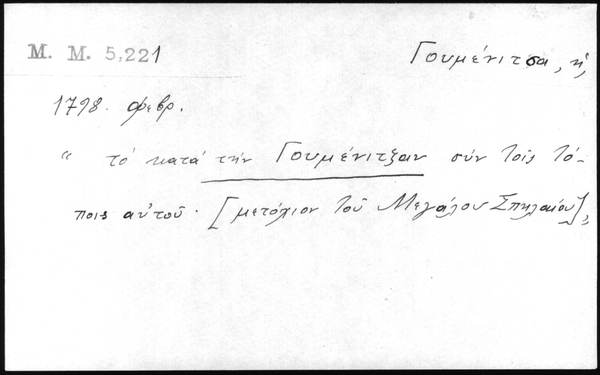 Μ. Μ. 5,221
Γουμένιτσα, ἡ,
1798. φεβρ.
“ τό κατά τήν Γουμένιτζαν σύν τοῖς τό-
ποις αὐτοῦ · [μετόχιον τοῦ Μεγάλου Σπηλαίου],